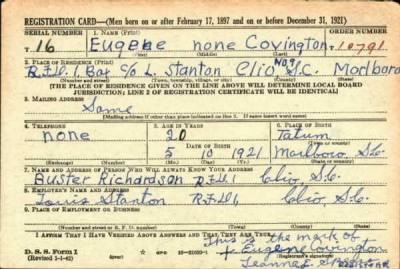 REGISTRATION CARD—(Men born on or after February 17, 1897 and on or before December 31, 1921)
SERIAL NUMBER 1. NAME (Print) ORDER NUMBER
T. 16 Eugene none Covington T10791
(First) (Middle) (Last)
2. PLACE OF RESIDENCE (Print)
R.F.D. 1 Box c/o L. Stanton Clio No 9 S.C. Marlboro
(Number and street) (Town, township, village, or city) (County) (State)
[THE PLACE OF RESIDENCE GIVEN ON THE LINE ABOVE WILL DETERMINE LOCAL BOARD
JURISDICTION; LINE 2 OF REGISTRATION CERTIFICATE WILL BE IDENTICAL]
3. MAILING ADDRESS
Same
[Mailing address if other than place indicated on line 2. If same insert word same]
4. TELEPHONE 5. AGE IN YEARS 6. PLACE OF BIRTH
none 20 Tatum
DATE OF BIRTH (Town or county)
5 10 1921 Marlboro, S.C.
(Exchange) (Number) (Mo.) (Day) (Yr.) (State or country)
7. NAME AND ADDRESS OF PERSON WHO WILL ALWAYS KNOW YOUR ADDRESS
Buster Richardson R.F.D. 1, Clio, S.C.
8. EMPLOYER'S NAME AND ADDRESS
Louis Stanton R.F.D. 1, Clio, S.C.
9. PLACE OF EMPLOYMENT OR BUSINESS
(Number and street or R. F. D. number) (Town) (County) (State)
I AFFIRM THAT I HAVE VERIFIED ABOVE ANSWERS AND THAT THEY ARE TRUE.
This is the mark of
D. S. S. Form 1 + Eugene Covington
(Revised 1-1-42) (Registrant's signature)
REGISTRAR